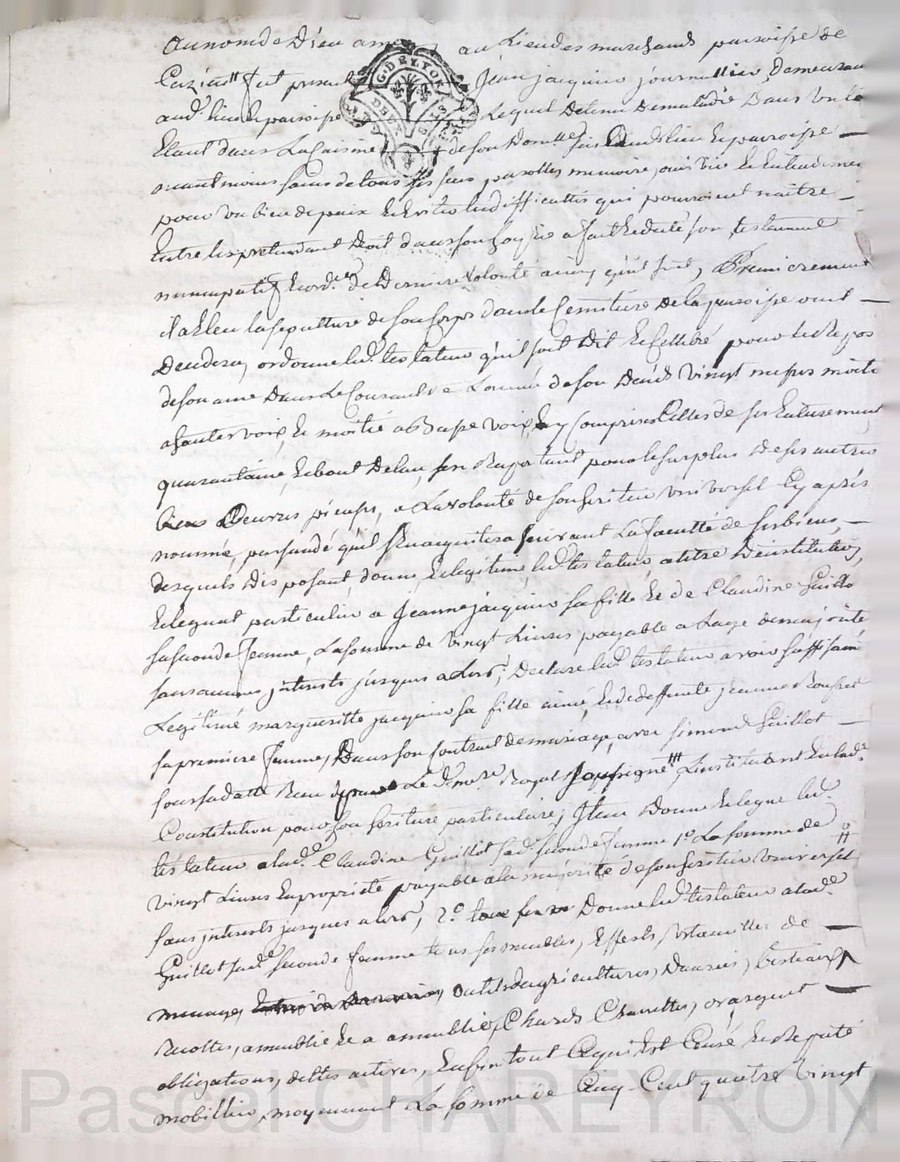 au nom de Dieu amen au Lieu des marchands paroisse de
fut present Jean jacquin journallier Demeurant
aud. lieu paroisse Lequel Detenu De maladie Dans un lit
Etant dans La Caisine de son Domille sis aud. lieu et paroisse
neantmoins sains de tous ses sens paroles, memoire, ouie vüe et Entendement
pour un bien de paix et Eviter les difficultés qui pourroient naître
Entre les pretendant Droit dans son hoyrie a fait rediger son testament
nuncupatif Et ord.re De Derniere volonté ainsy qu'il suit, Premierement
il a Eleu la sepulture de son corps dans le Cemitiere de la paroisse ou il
Decedera, ordonne led. testateur qu'il soit Dit et celebré pour le Repos
de son ame Dans Le Courant de L'année de son Decés vingt messes moitié
a hautes voix, Et moitié a Basse voix, y Comprises Celles de ses Enterrement
quarantaine, Et bout De l'an, s'en Raportant pour le surplus De ses autres
Oeuvres pieuses, a La volonté de son heritier universel Cy après
nommé, persuadé qu'il s'en acquitera suivant La faculté de ses biens,
desquels Disposant, donne, Et legue led. testateur, a titre D'institution,
Et legat particulier a Jeanne jacquin sa fille Et de Claudine Guillot
sa seconde femme, La somme de vingt Livres payable a L'age de majorité
sans aucuns jnterests jusques a Lors; Declare led. testateur avoir suffisament
Legitimé margueritte jacquin sa fille ainée, Et de deffunte jeanne
sa premiere femme, Dans son Contrat de mariage avec simond Guillot
sous sa datte Receu par Le Notaire Royal soussigné L'instituant En lad.
Constitution pour son heritiere particuliere; Jtem Donne Et legue led.
testateur a lad. Claudine Guillot sad. seconde femme 1º La somme de
vingt Livres En proprieté payable a la majorité de son heritier universel
sans jnterests jusques a lors, 2º Donne led. testateur a lad.
Guillot sad. seconde femme tous ses meubles, Effets, Utancilles de
menage, outils d'agricultures, Danrées, bestiaux,
Recoltes, ameublie Et a ameublier, Chards Charettes, or argent
obligations, dettes actives, Enfin tout Ce qui Est Censé, Et Reputé
mobillier, moyennant La somme de Cinq Cent quatre vingt
G. DE LYON
Pascal CHAREYRON